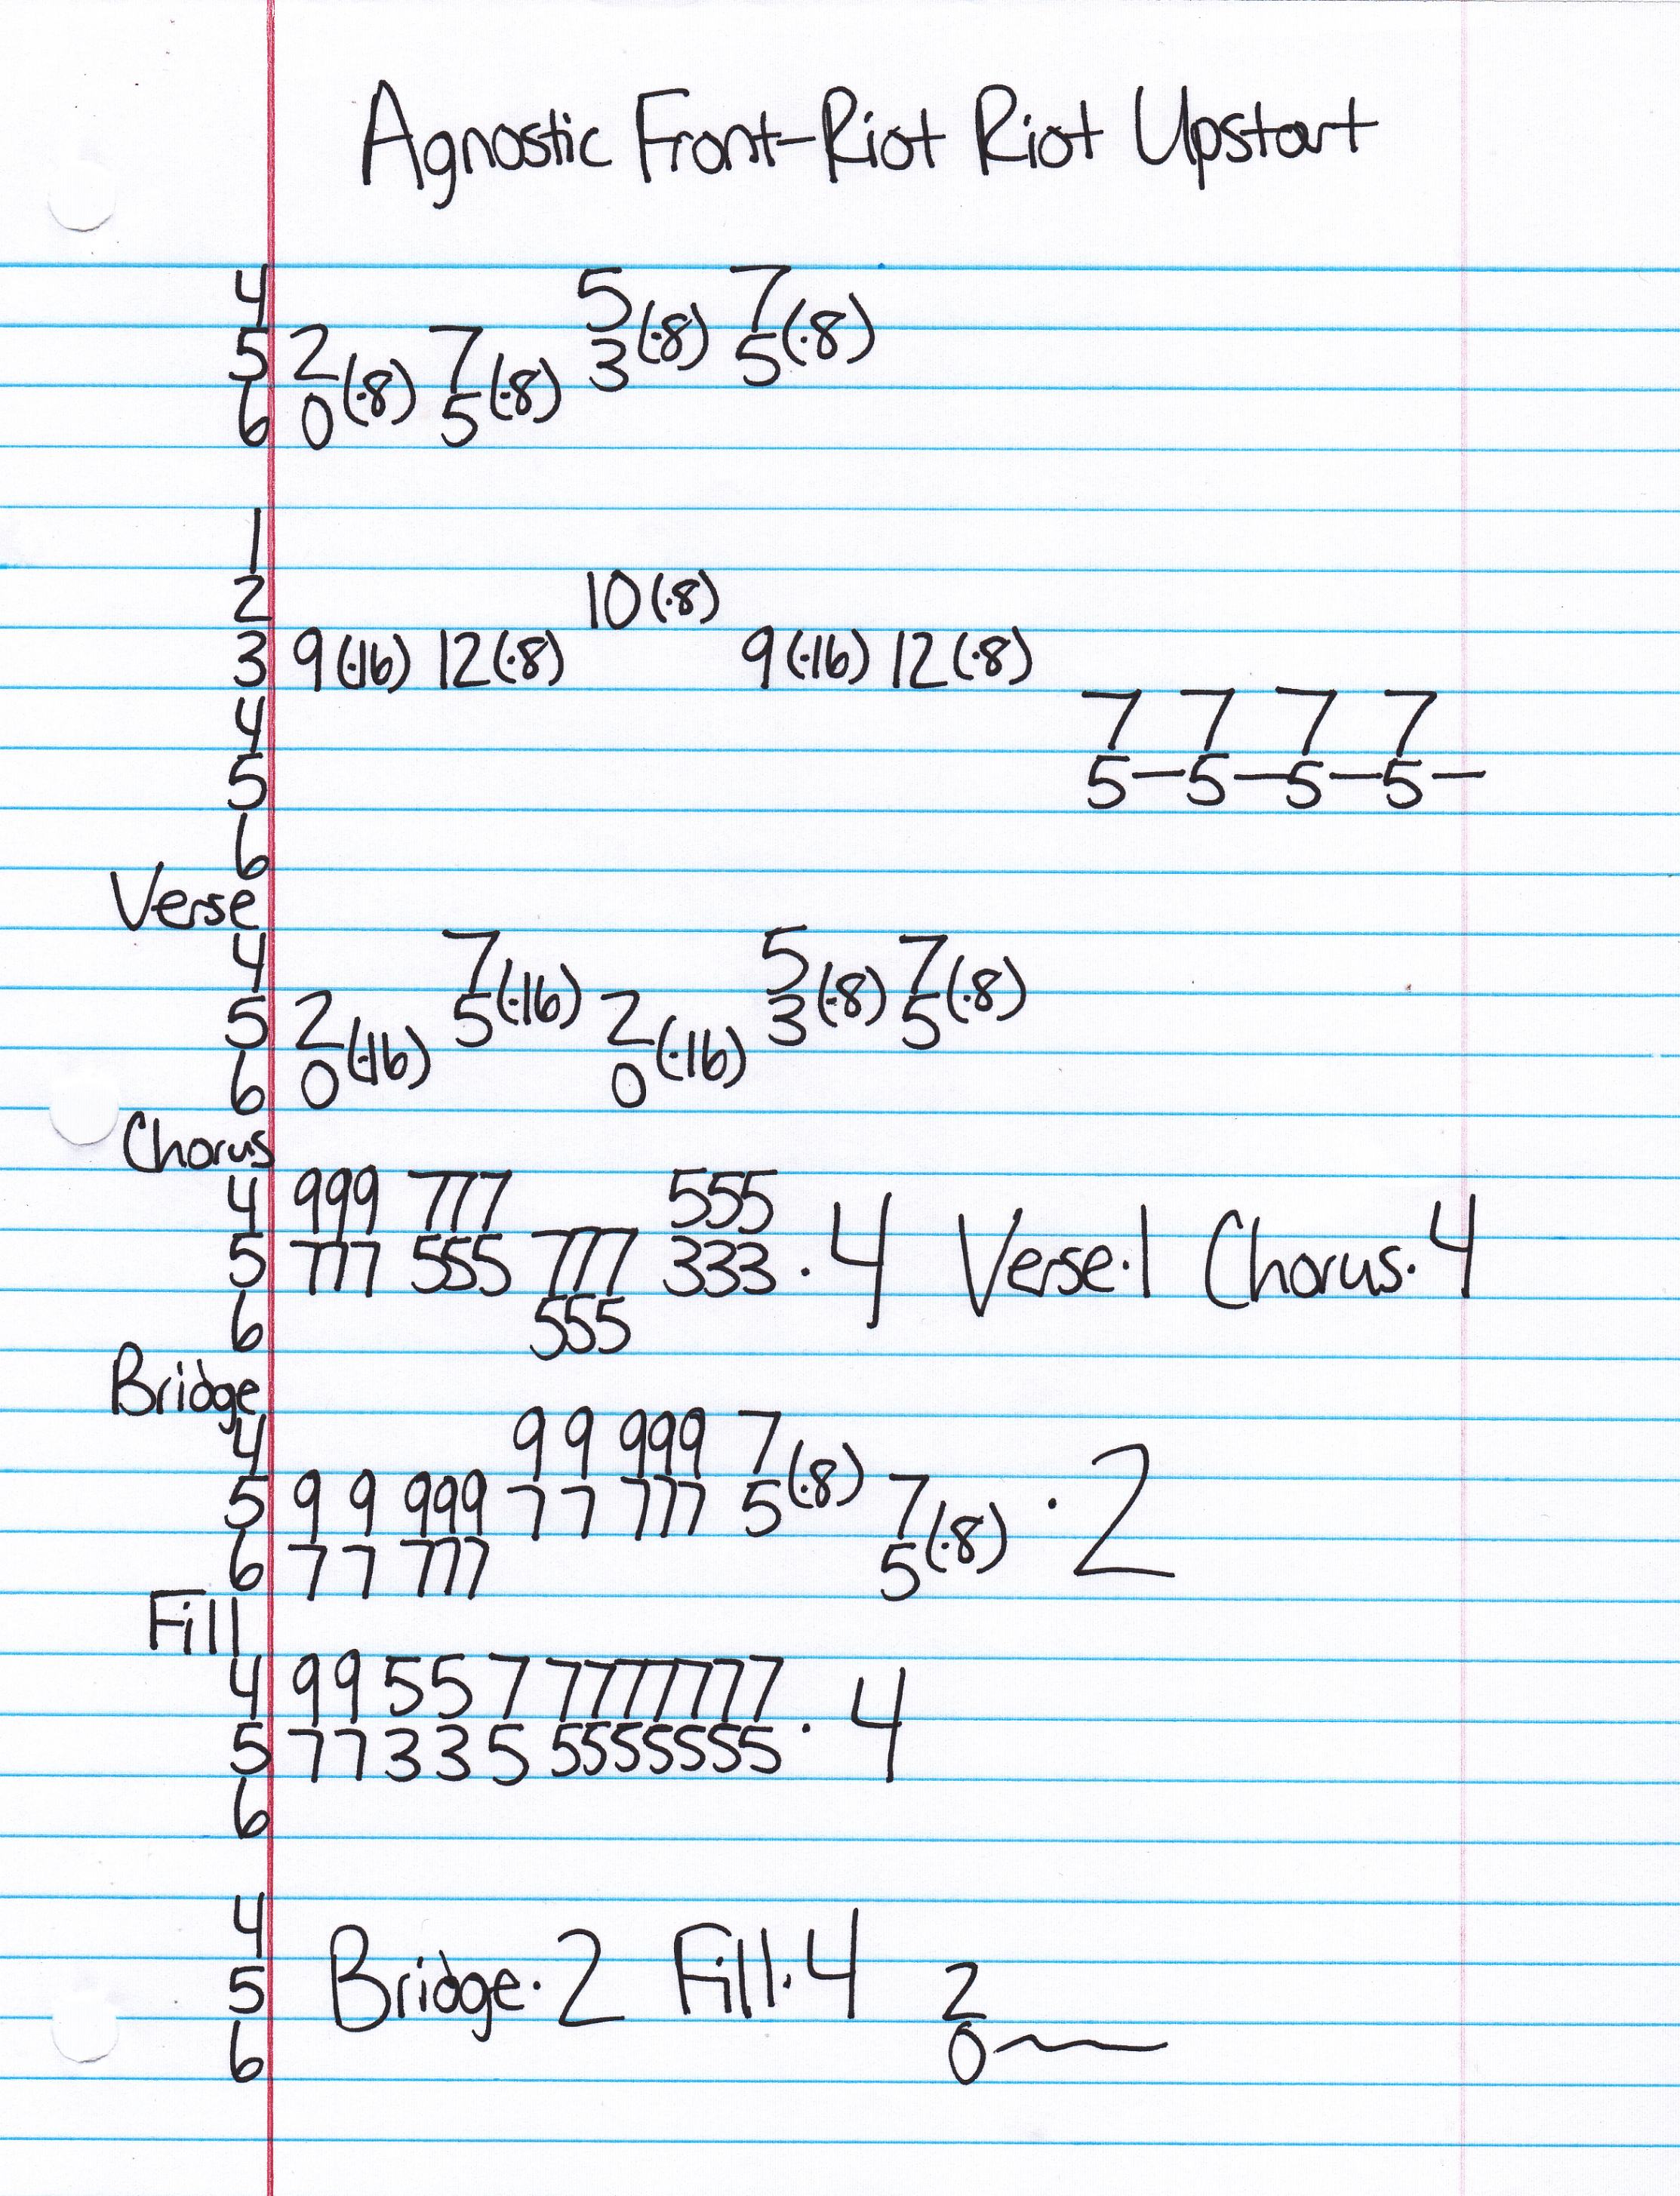 Agnostic Front-Riot Riot Upstart
4 5 7
5 2 7 3 (·8) 5 (·8)
6 0 (·8) 5 (·8)
1
2 10 (·8)
3 9 (·16) 12 (·8) 9 (·16) 12 (·8)
4 7 7 7 7
5 5—5—5—5—
6
Verse
4 7 5 7
5 2 5 (·16) 2 3 (·8) 5 (·8)
6 0 (·16) 0 (·16)
Chorus
4 999 777 555
5 777 555 777 333 · 4 Verse·1 Chorus·4
6 555
Bridge
4 9 9 999 7
5 9 9 999 7 7 777 5 (·8) 7 · 2
6 7 7 777 5 (·8)
Fill
4 9 9 5 5 7 7777777
5 7 7 3 3 5 5555555 · 4
6
4
5 Bridge·2 Fill·4 2
6 0~